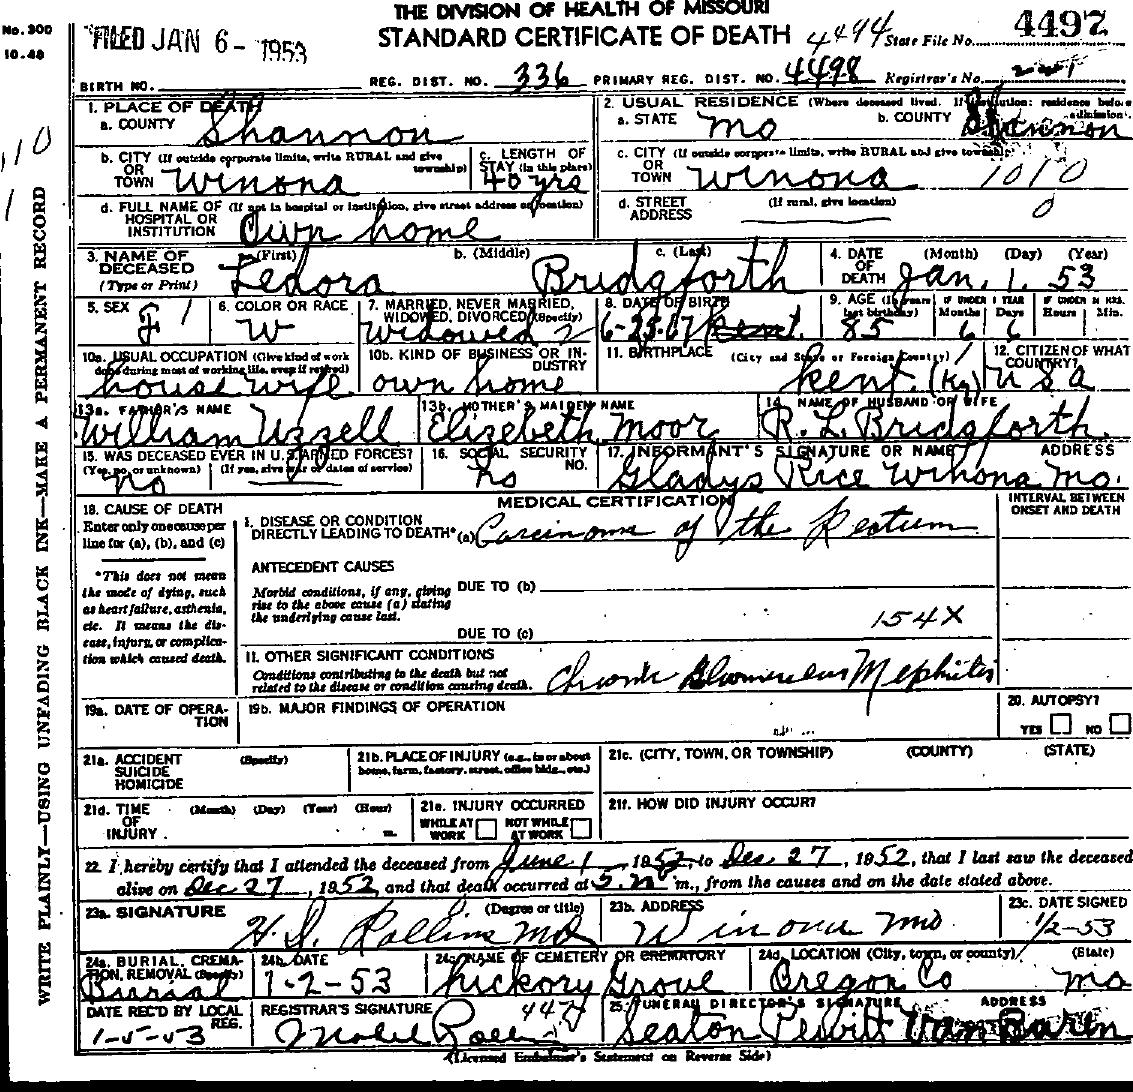 THE DIVISION OF HEALTH OF MISSOURI
No. 300
10-48
FILED JAN 6 - 1953
STANDARD CERTIFICATE OF DEATH 4494 State File No. 4497
BIRTH NO. REG. DIST. NO. 336 PRIMARY REG. DIST. NO. 4498 Registrar's No.
1. PLACE OF DEATH
a. COUNTY Shannon
2. USUAL RESIDENCE (Where deceased lived. If institution: residence before admission).
a. STATE Mo b. COUNTY Shannon
110
1
b. CITY (If outside corporate limits, write RURAL and give township)
OR
TOWN Winona
c. LENGTH OF
STAY (in this place)
40 yrs
c. CITY (If outside corporate limits, write RURAL and give township)
OR
TOWN Winona 1010
d. FULL NAME OF (If not in hospital or institution, give street address or location)
HOSPITAL OR
INSTITUTION Own home
d. STREET (If rural, give location)
ADDRESS 0
3. NAME OF
DECEASED
(Type or Print)
a. (First) b. (Middle) c. (Last)
Fedora Bridgforth
4. DATE (Month) (Day) (Year)
OF
DEATH Jan. 1. 53
5. SEX F 1
6. COLOR OR RACE
W
7. MARRIED, NEVER MARRIED,
WIDOWED, DIVORCED (Specify)
Widowed 2
8. DATE OF BIRTH
6-25-67
9. AGE (In years last birthday) IF UNDER 1 YEAR Months Days IF UNDER 24 HRS. Hours Min.
85 6 6
10a. USUAL OCCUPATION (Give kind of work
done during most of working life, even if retired)
house wife
10b. KIND OF BUSINESS OR INDUSTRY
own home
11. BIRTHPLACE (City and State or Foreign Country) 1
Kent. (Ky)
12. CITIZEN OF WHAT
COUNTRY?
USA
13a. FATHER'S NAME
William Uzzell
13b. MOTHER'S MAIDEN NAME
Elizebeth Moor
14. NAME OF HUSBAND OR WIFE
R. L. Bridgforth.
15. WAS DECEASED EVER IN U.S. ARMED FORCES?
(Yes, no, or unknown) (If yes, give war or dates of service)
No
16. SOCIAL SECURITY
NO.
No
17. INFORMANT'S SIGNATURE OR NAME ADDRESS
Gladys Rice Winona Mo.
18. CAUSE OF DEATH
Enter only one cause per
line for (a), (b), and (c)
*This does not mean
the mode of dying, such
as heart failure, asthenia,
etc. It means the disease,
injury, or complication
which caused death.
MEDICAL CERTIFICATION
INTERVAL BETWEEN
ONSET AND DEATH
I. DISEASE OR CONDITION
DIRECTLY LEADING TO DEATH* (a) Carcinoma of the Rectum
ANTECEDENT CAUSES
Morbid conditions, if any, giving
rise to the above cause (a) stating
the underlying cause last.
DUE TO (b)
154X
DUE TO (c)
II. OTHER SIGNIFICANT CONDITIONS
Conditions contributing to the death but not
related to the disease or condition causing death.
Chronic Glomerular Nephritis
19a. DATE OF OPERATION
19b. MAJOR FINDINGS OF OPERATION
20. AUTOPSY?
YES NO
21a. ACCIDENT (Specify)
SUICIDE
HOMICIDE
21b. PLACE OF INJURY (e.g., in or about
home, farm, factory, street, office bldg., etc.)
21c. (CITY, TOWN, OR TOWNSHIP) (COUNTY) (STATE)
21d. TIME (Month) (Day) (Year) (Hour)
OF
INJURY m.
21e. INJURY OCCURRED
WHILE AT WORK NOT WHILE AT WORK
21f. HOW DID INJURY OCCUR?
22. I hereby certify that I attended the deceased from June 1, 1952, to Dec 27, 1952, that I last saw the deceased
alive on Dec 27, 1952, and that death occurred at m., from the causes and on the date stated above.
23a. SIGNATURE (Degree or title)
H. S. Rollins MD
23b. ADDRESS
Winona Mo
23c. DATE SIGNED
1/2-53
24a. BURIAL, CREMATION,
REMOVAL (Specify)
Burial
24b. DATE
1-2-53
24c. NAME OF CEMETERY OR CREMATORY
Hickory Grove
24d. LOCATION (City, town, or county) (State)
Oregon Co Mo
DATE REC'D BY LOCAL
REG.
1-5-53
REGISTRAR'S SIGNATURE
Mabel
25. FUNERAL DIRECTOR'S SIGNATURE ADDRESS
Seaton Pewitt Van Buren
(Licensed Embalmer's Statement on Reverse Side)
WRITE PLAINLY—USING UNFADING BLACK INK—MAKE A PERMANENT RECORD